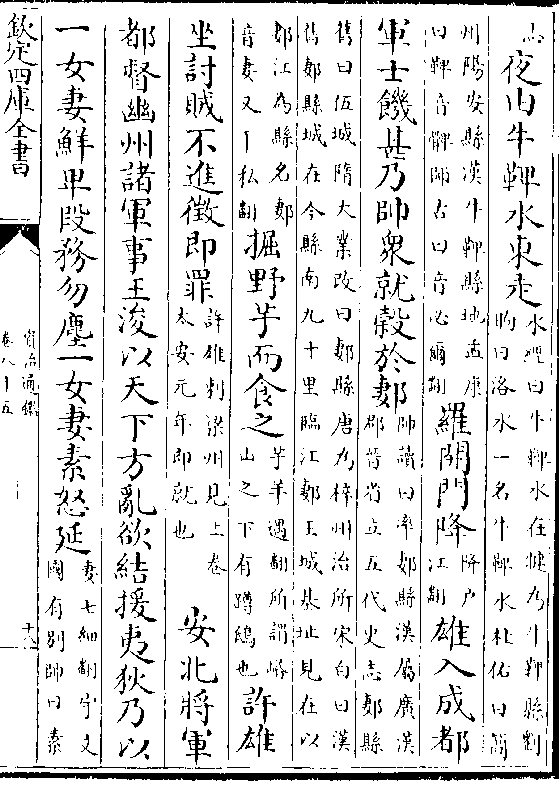 志夜由牛鞞水東走水經曰牛鞞水在犍為牛鞞縣劉
昫曰洛水一名牛鞞水杜佑曰簡
州陽安縣漢牛鞞縣地孟康
曰鞞音髀師古曰音必爾翻羅開門降降户
江翻雄入成都
軍士饑甚乃帥衆就穀於郪帥讀曰率郪縣漢屬廣漢
郡晉省立五代史志郪縣
舊曰伍城隋大業改曰郪縣唐為梓州治所宋白曰漢
舊郪縣城在今縣南九十里臨江郪王城基址見在以
郪江為縣名郪
音妻又千私翻掘野芋而食之芋羊遇翻所謂㟭
山之下有蹲鴟也許雄
坐討賊不進徵即罪許雄刺梁州見上卷
太安元年即就也安北將軍
都督幽州諸軍事王浚以天下方亂欲結援夷狄乃以
一女妻鮮卑段務勿塵一女妻素怒延妻七細翻宇文
國有别帥曰素
欽定四庫全書
資治通鑑
卷八十五